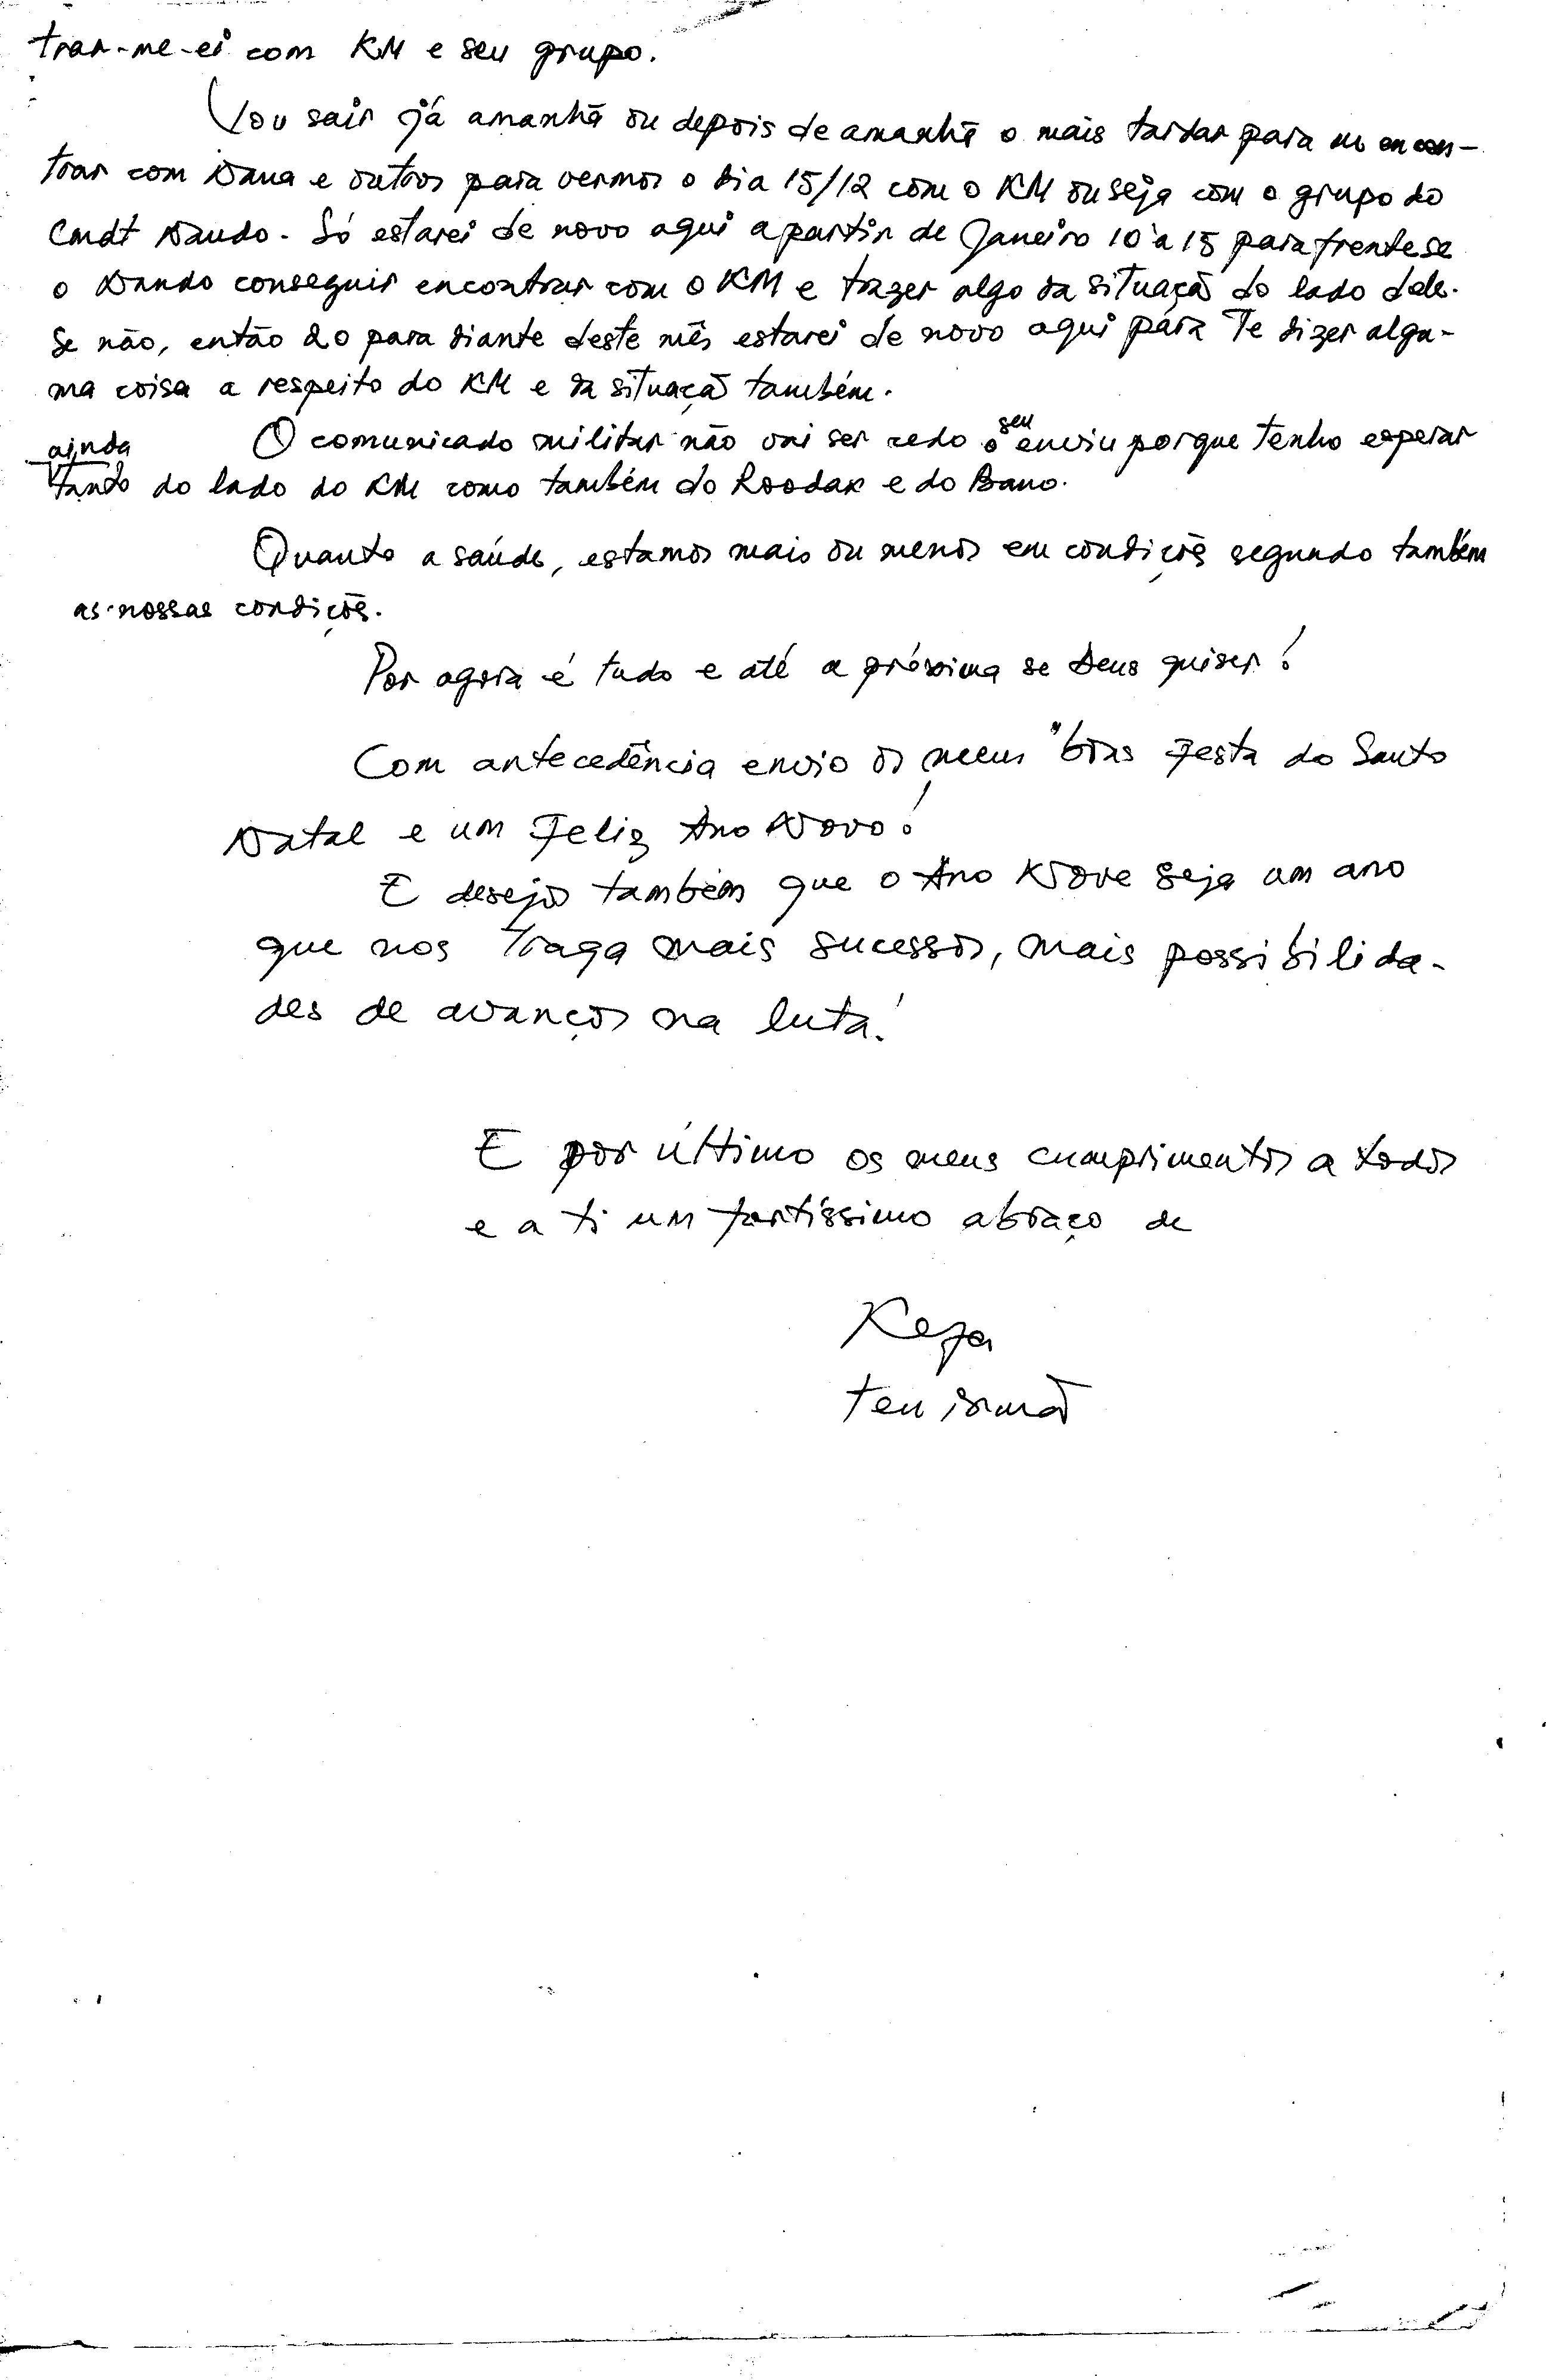 trar-me-ei com KM e seu grupo.
Vou sair já amanhã ou depois de amanhã o mais tardar para me encon-
trar com Nana e outros para vermos o dia 15/12 com o KM ou seja com o grupo do
Cmdt Nando. Só estarei de novo aqui apartir de Janeiro 10 a 15 para frente se
o Nando conseguir encontrar com o KM e trazer algo da situação do lado dele.
Se não, então 20 para diante deste mês estarei de novo aqui para Te dizer algu-
ma coisa a respeito do KM e da situação também.
O comunicado militar não vai ser cedo o seu enviu porque tenho esperar
ainda
tanto do lado do KM como também do Roodak e do Bano.
Quanto a saúde, estamos mais ou menos em condições segundo também
as nossas condições.
Por agora é tudo e até a próxima se Deus quiser!
Com antecedência envio os meus boas Festa do Santo
Natal e um Feliz Ano Novo!
E desejo também que o Ano Nove seja um ano
que nos traga mais sucessos, mais possibilida-
des de avanços na luta!
E por último os meus cumprimentos a todos
e a ti um fortíssimo abraço de
teu irmão